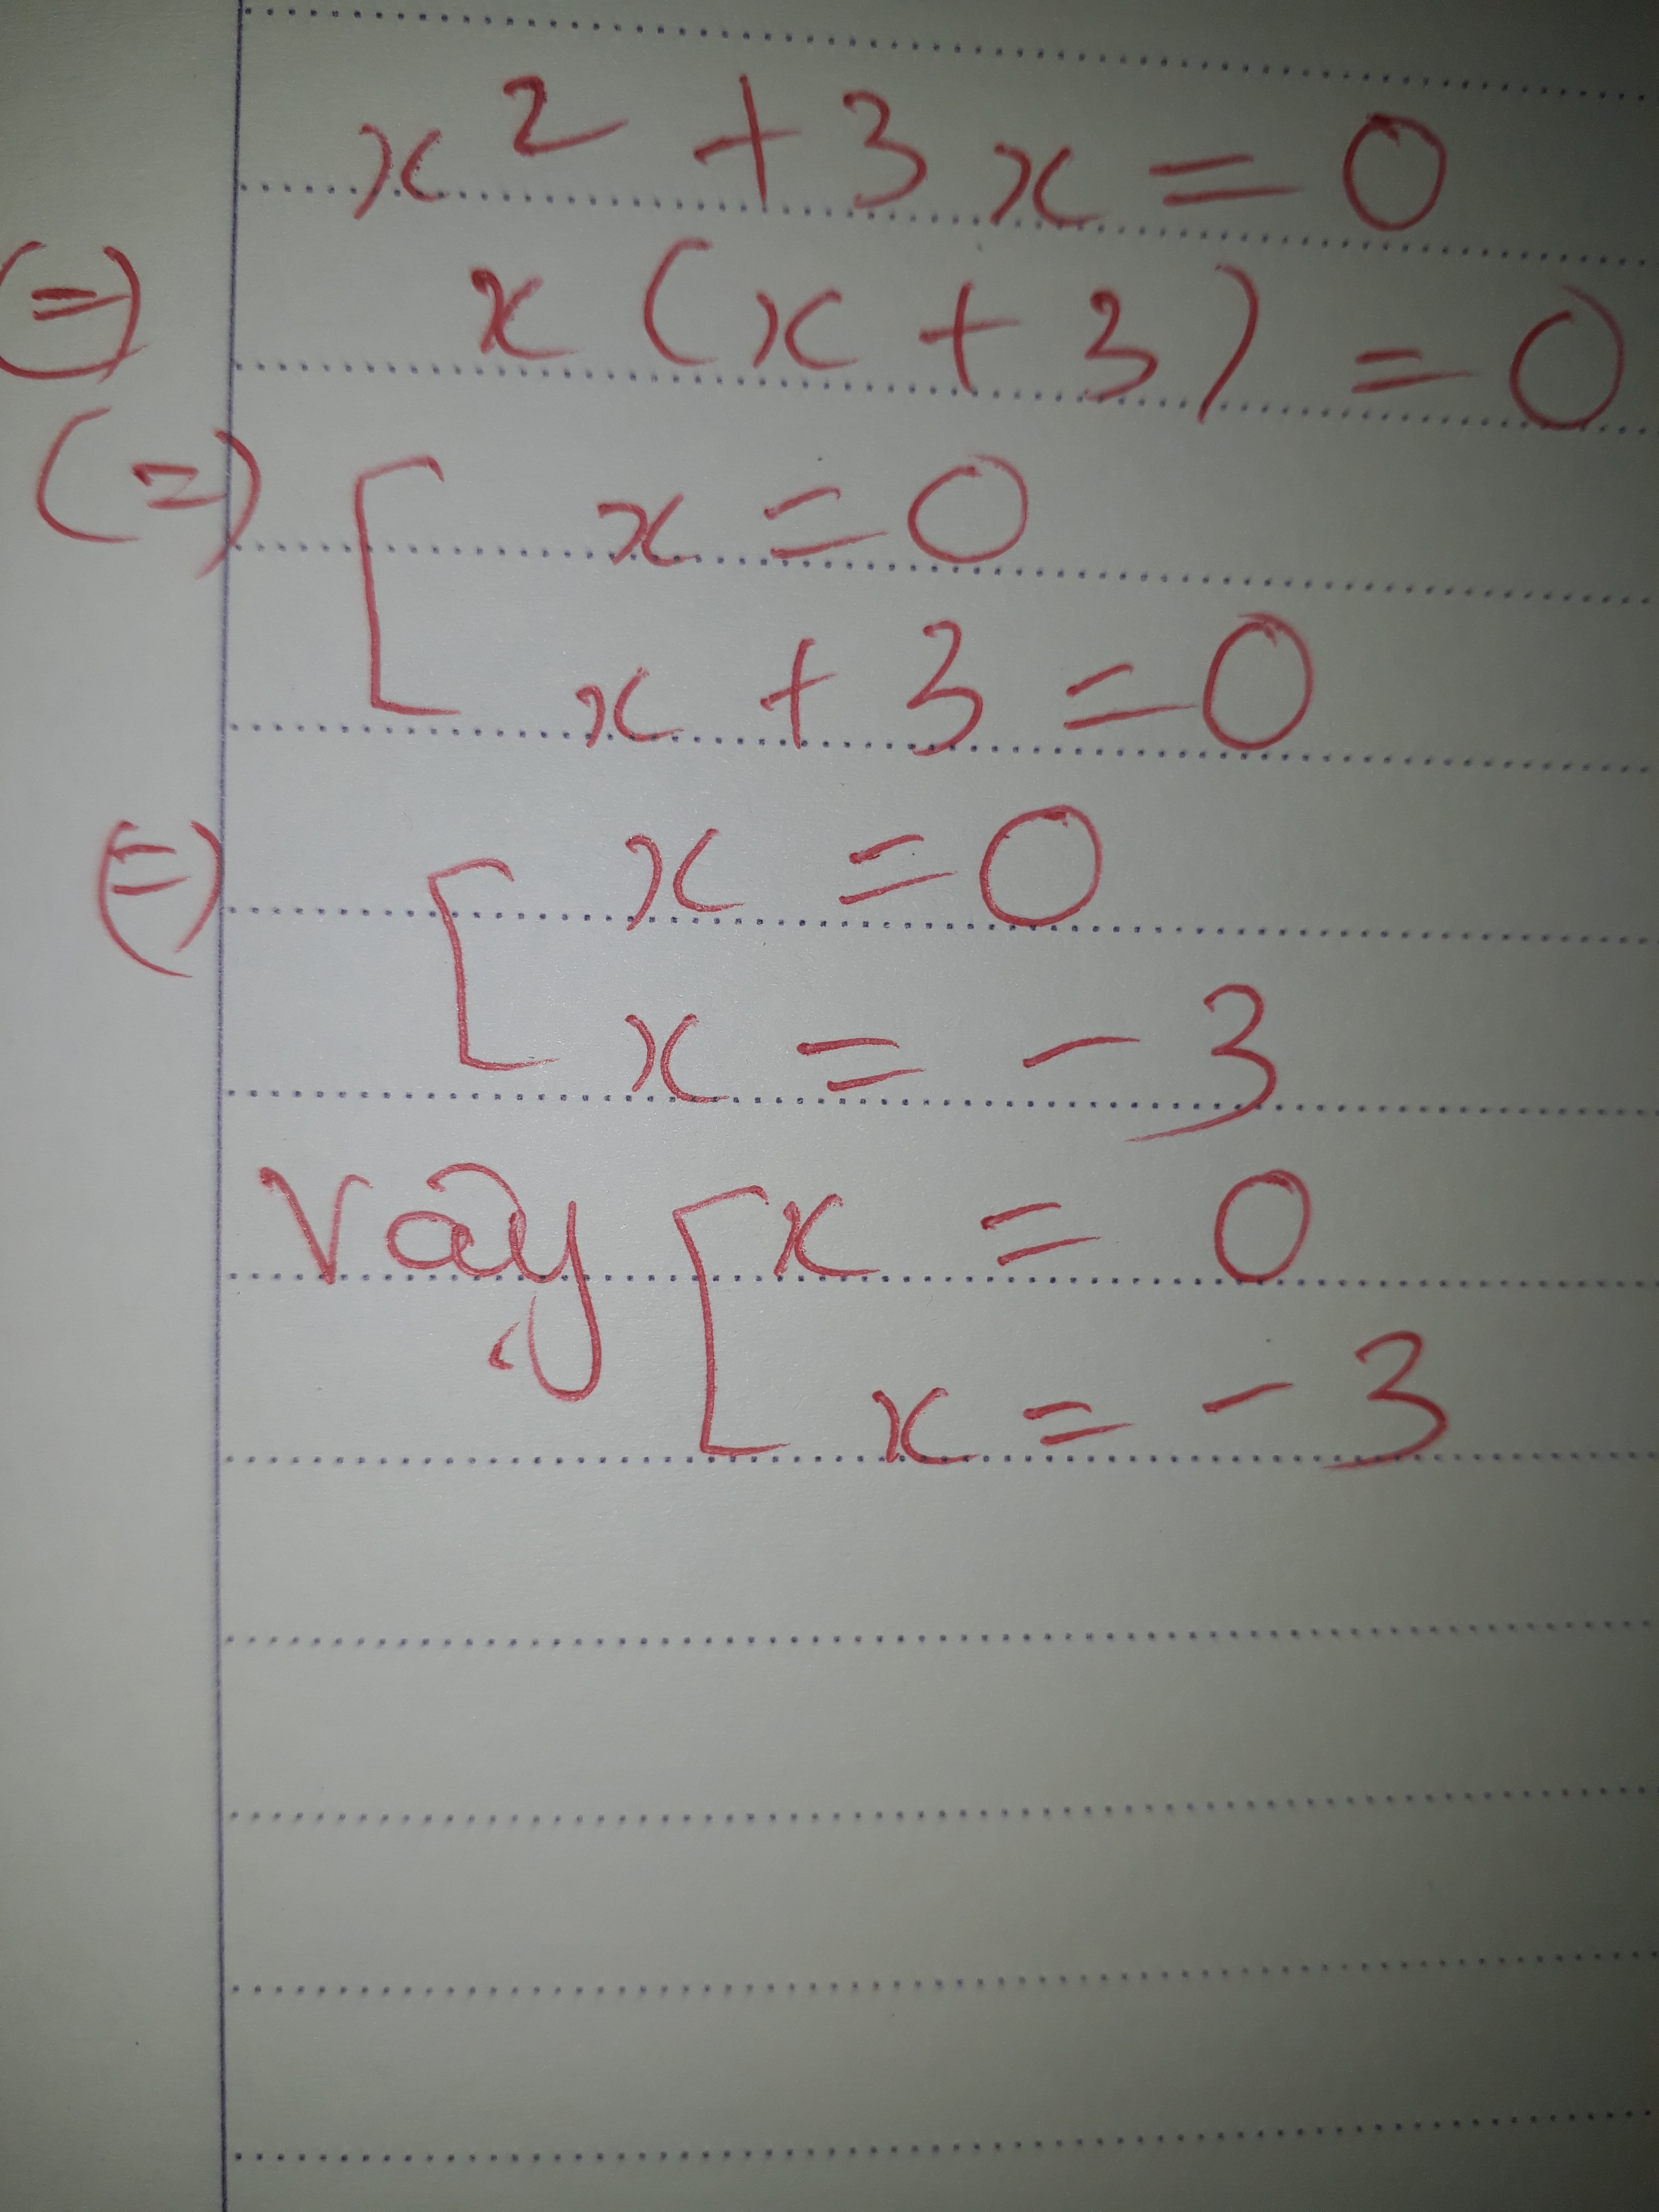 x² + 3x = 0
(=) x (x + 3) = 0
(=) [ x = 0
x + 3 = 0
(=) [ x = 0
x = - 3
Vậy [ x = 0
x = - 3